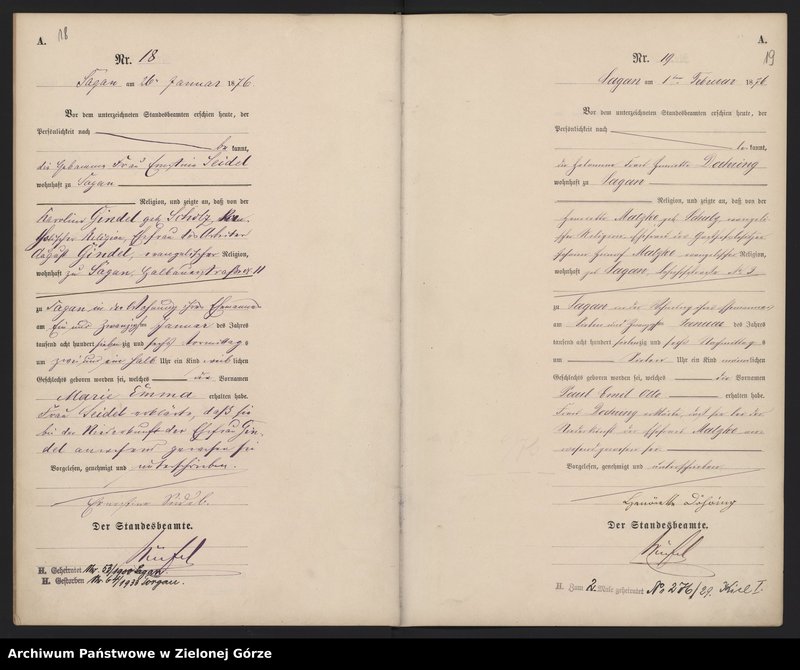 A.
18
Nr. 18
Sagan am 26. Januar 1876.
Vor dem unterzeichneten Standesbeamten erschien heute, der
Persönlichkeit nach
be kannt,
die Hebamme Frau Ernstine Seidel
wohnhaft zu Sagan
Religion, und zeigte an, daß von der
Karoline Gindel geb. Scholz,
tholischer Religion, Ehefrau des Arbeiter
August Gindel, evangelischer Religion,
wohnhaft zu Sagan, Halbauerstraße 11
zu Sagan in der Behausung ihres Ehemannes
am Ein und Zwanzigsten Januar des Jahres
tausend acht hundert sieben zig und sechs Vormittags
um zwei und ein halb Uhr ein Kind weib lichen
Geschlechts geboren worden sei, welches die Vornamen
Marie Emma erhalten habe.
Frau Seidel erklärte, daß sie
bei der Niederkunft der Ehefrau Gin-
del anwesend gewesen sei
Vorgelesen, genehmigt und unterschrieben.
Ernestine Seidel.
Der Standesbeamte.
H. Geheiratet Nr. 53/1900 Sagan
H. Gestorben Nr. 64/1938 Sorgau.
A.
19
Nr. 19.
Sagan am 1ten Februar 1876.
Vor dem unterzeichneten Standesbeamten erschien heute, der
Persönlichkeit nach
be kannt,
die Hebamme Frau Henriette Doehring
wohnhaft zu Sagan
Religion, und zeigte an, daß von der
Henriette Matzke geb. Schulz evangeli
scher Religion, Ehefrau des
Matzke evangelischer Religion,
wohnhaft zu Sagan, No 3
zu Sagan in der Behausung ihres Ehemannes
am Sieben und Zwanzigsten Januar des Jahres
tausend acht hundert siebenzig und sechs Nachmittag s
um Sieben Uhr ein Kind männ lichen
Geschlechts geboren worden sei, welches die Vornamen
Paul Emil Otto erhalten habe.
Frau Doehring erklärte, daß sie bei der
Niederkunft der Ehefrau Matzke an-
wesend gewesen sei
Vorgelesen, genehmigt und unterschrieben
Henriette Döhring
Der Standesbeamte.
H. Zum 2. Male geheiratet No 276/29. Kiel I.
Archiwum Państwowe w Zielonej Górze